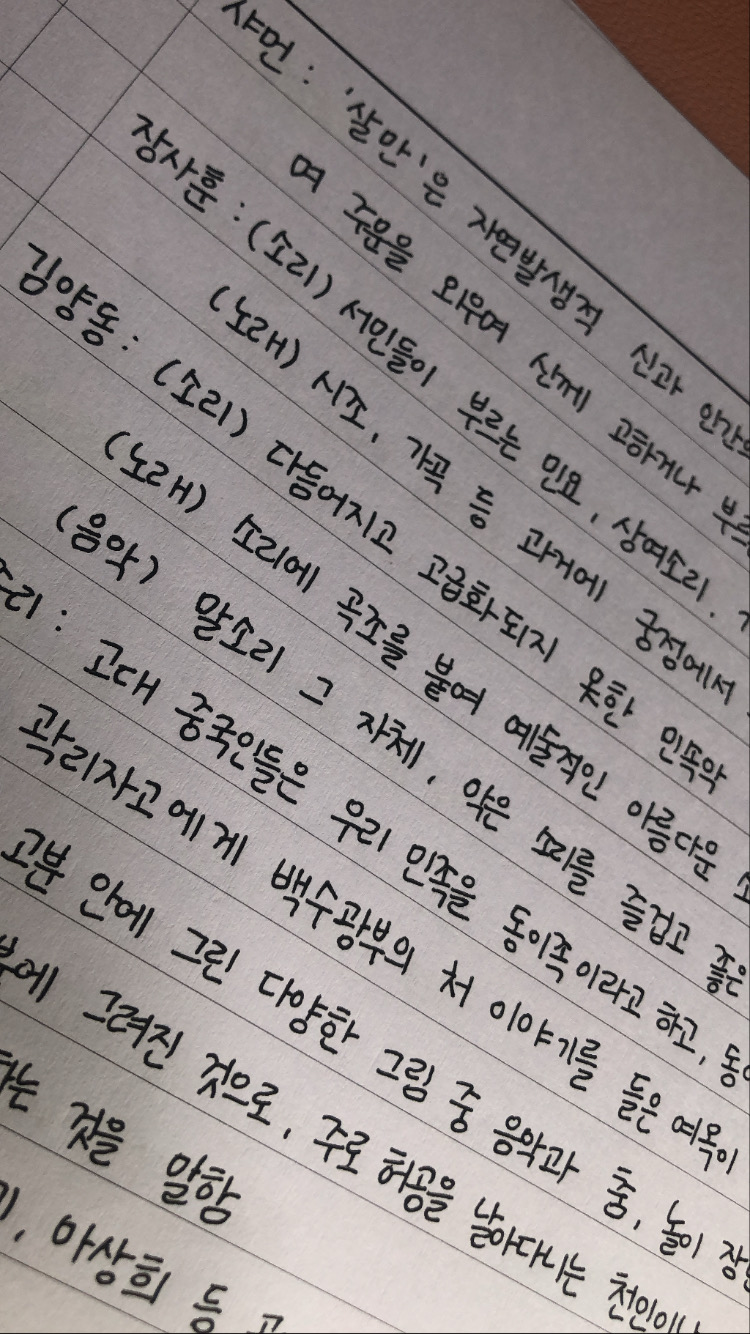 샤먼 : '살만'은 자연발생적 신과 인간의
며 주문을 외우며 신께 고하거나
장사훈 : (소리) 서민들이 부르는 민요, 상여소리.
(노래) 시조, 가곡 등 과거에 궁정에서
김양동 : (소리) 다듬어지고 고급화되지 못한 민속악
(노래) 소리에 곡조를 붙여 예술적인 아름다운
(음악) 말소리 그 자체, 악은 소리를 즐겁고 좋은
고대 중국인들은 우리 민족을 동이족이라고 하고,
곽리자고에게 백수광부의 처 이야기를 들은 여옥이
고분 안에 그린 다양한 그림 중 음악과 춤, 놀이
그려진 것으로, 주로 허공을 날아다니는
것을 말함
마상희 등